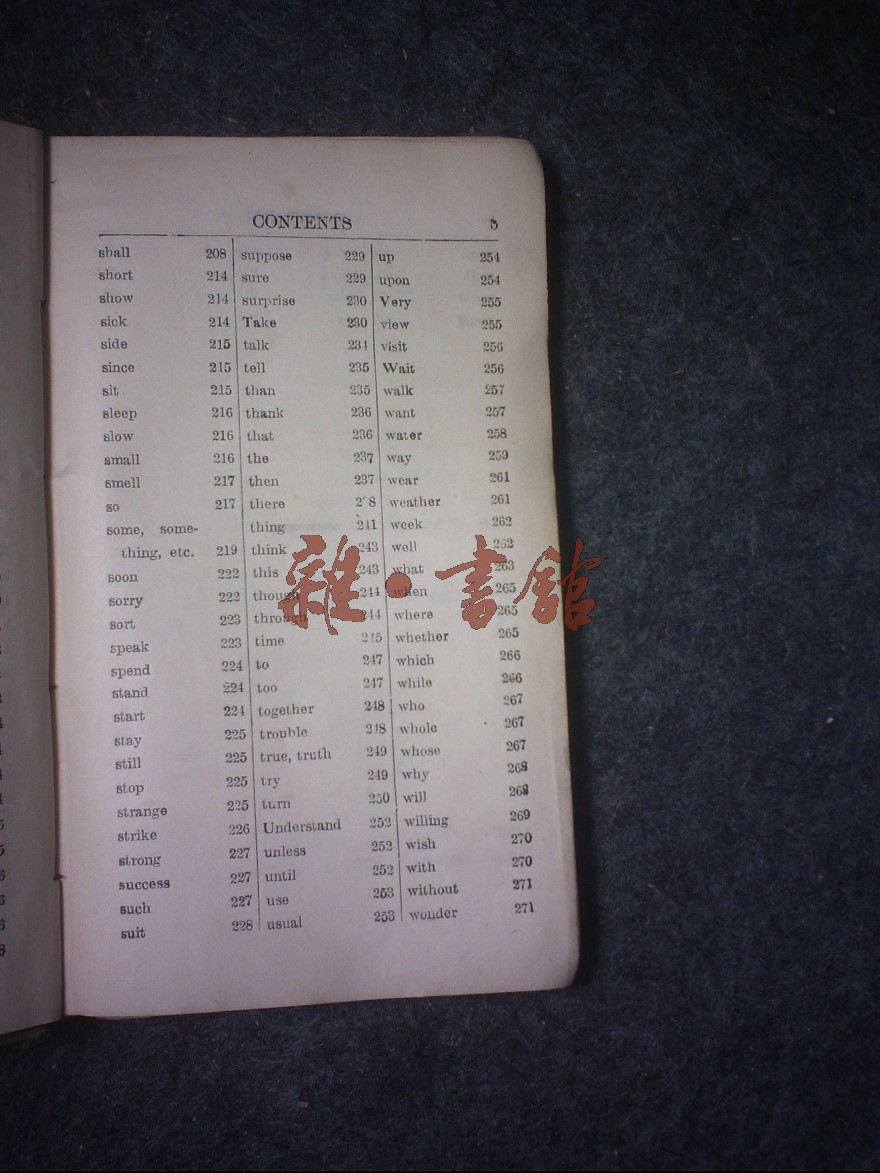 CONTENTS 5
shall 208
short 214
show 214
sick 214
side 215
since 215
sit 215
sleep 216
slow 216
small 216
smell 217
so 217
some, some-
thing, etc. 219
soon 222
sorry 222
sort 223
speak 223
spend 224
stand 224
start 224
stay 225
still 225
stop 225
strange 225
strike 226
strong 227
success 227
such 227
suit 228
suppose 229
sure 229
surprise 230
Take 230
talk 234
tell 235
than 235
thank 236
that 236
the 237
then 237
there
thing 241
think 243
this 243
though 244
through 244
time 245
to 247
too 247
together 248
trouble 248
true, truth 249
try 249
turn 250
Understand 252
unless 252
until 252
use 253
usual 253
up 254
upon 254
Very 255
view 255
visit 256
Wait 256
walk 257
want 257
water 258
way 259
wear 261
weather 261
week 262
well 262
what 263
when 265
where 265
whether 265
which 266
while 266
who 267
whole 267
whose 267
why 268
will 268
willing 269
wish 270
with 270
without 271
wonder 271
雜·書館